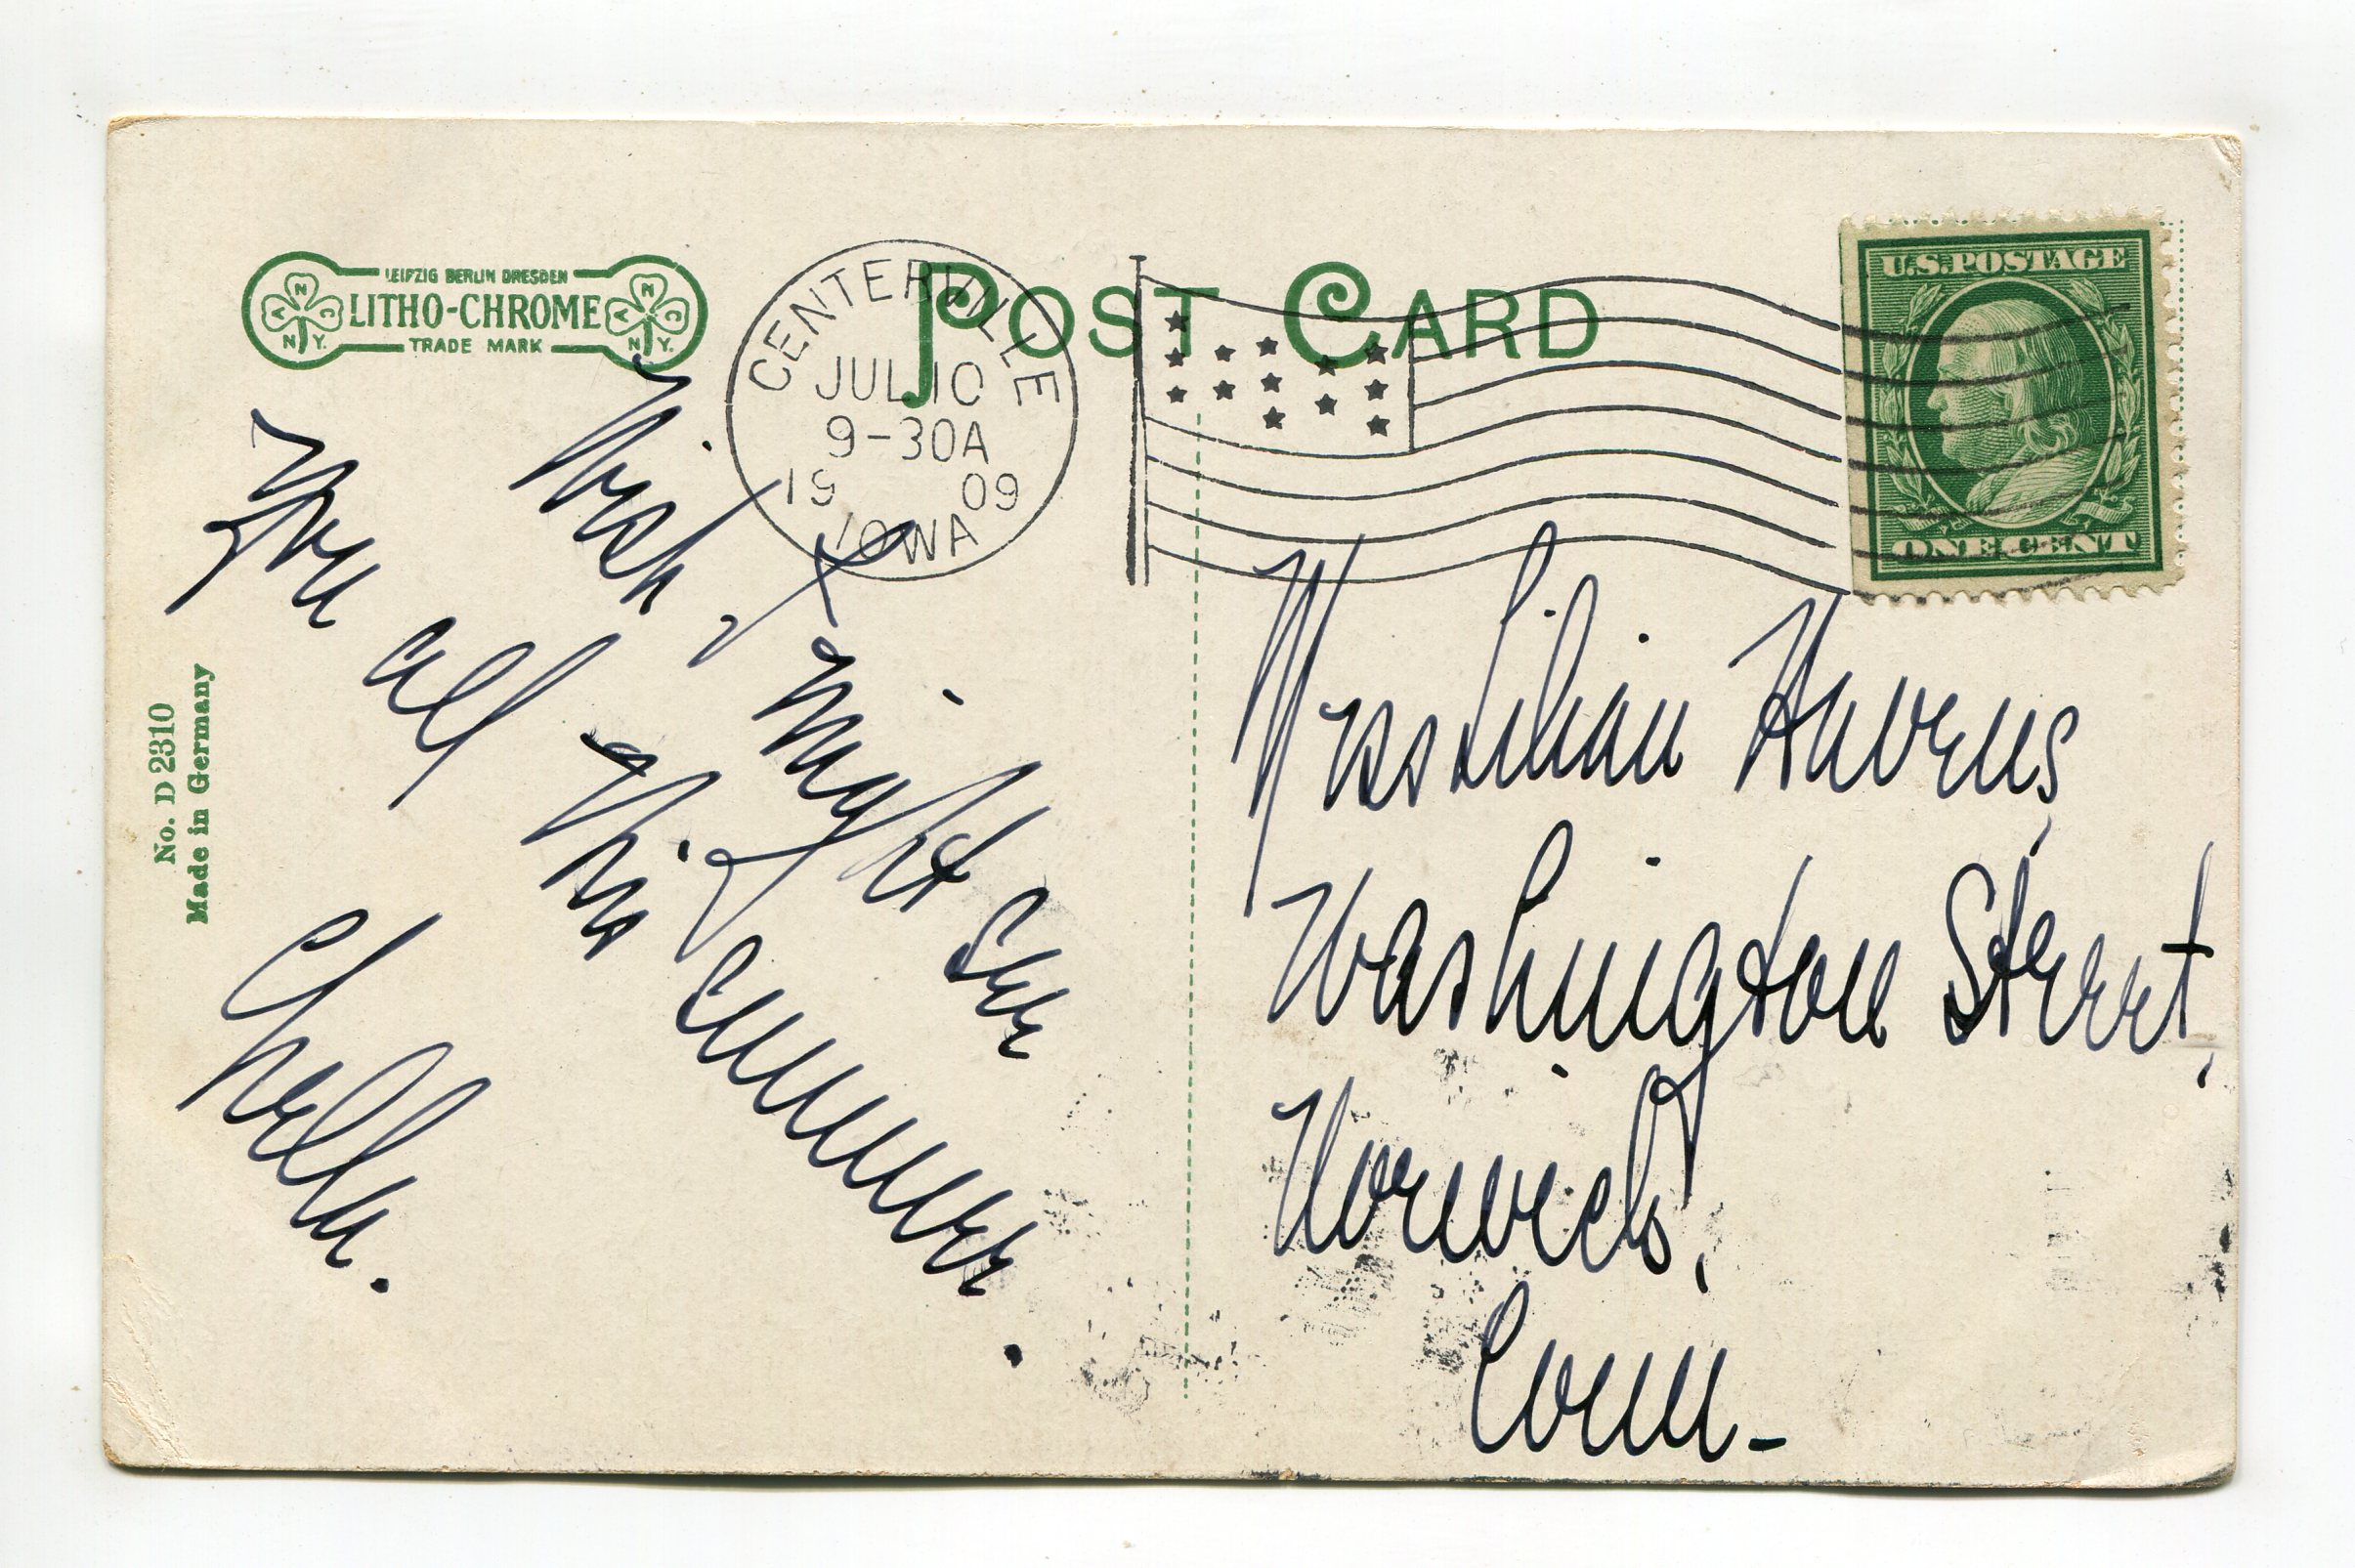 POST CARD
LEIPZIG BERLIN DRESDEN
LITHO-CHROME
TRADE MARK
N A C N.Y.
N A C N.Y.
CENTERVILLE
JUL 10
9-30A
1909
IOWA
U.S. POSTAGE
ONE CENT
No. D 2310
Made in Germany
Wish I might see
you all this summer.
Chella.
Miss Lilian Havens,
Washington Street,
Norwich,
Conn-